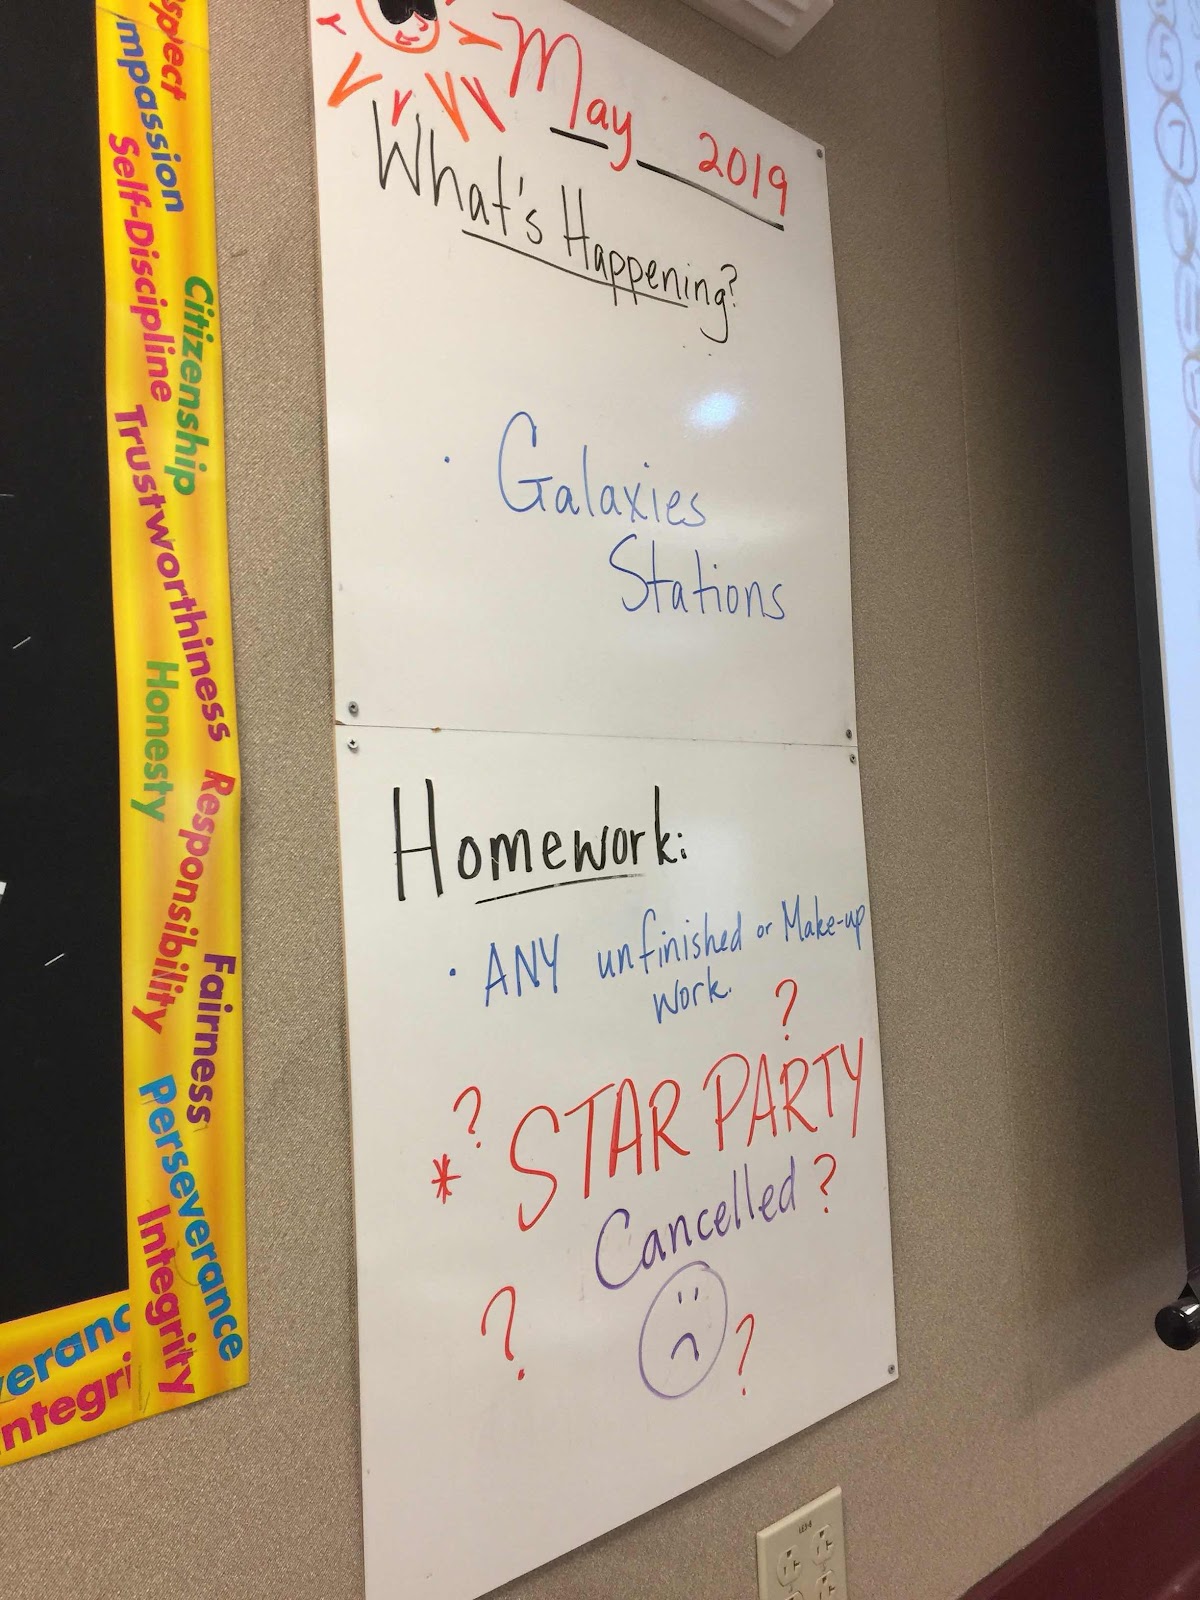 May 2019
What's Happening?
· Galaxies
Stations
Homework:
· ANY unfinished or Make-up
work.
?
?
* STAR PARTY
Cancelled ?
? ?
spect
mpassion
Self-Discipline
Citizenship
Trustworthiness
Honesty
Responsibility
Fairness
Perseverance
Integrity
veranc
integri